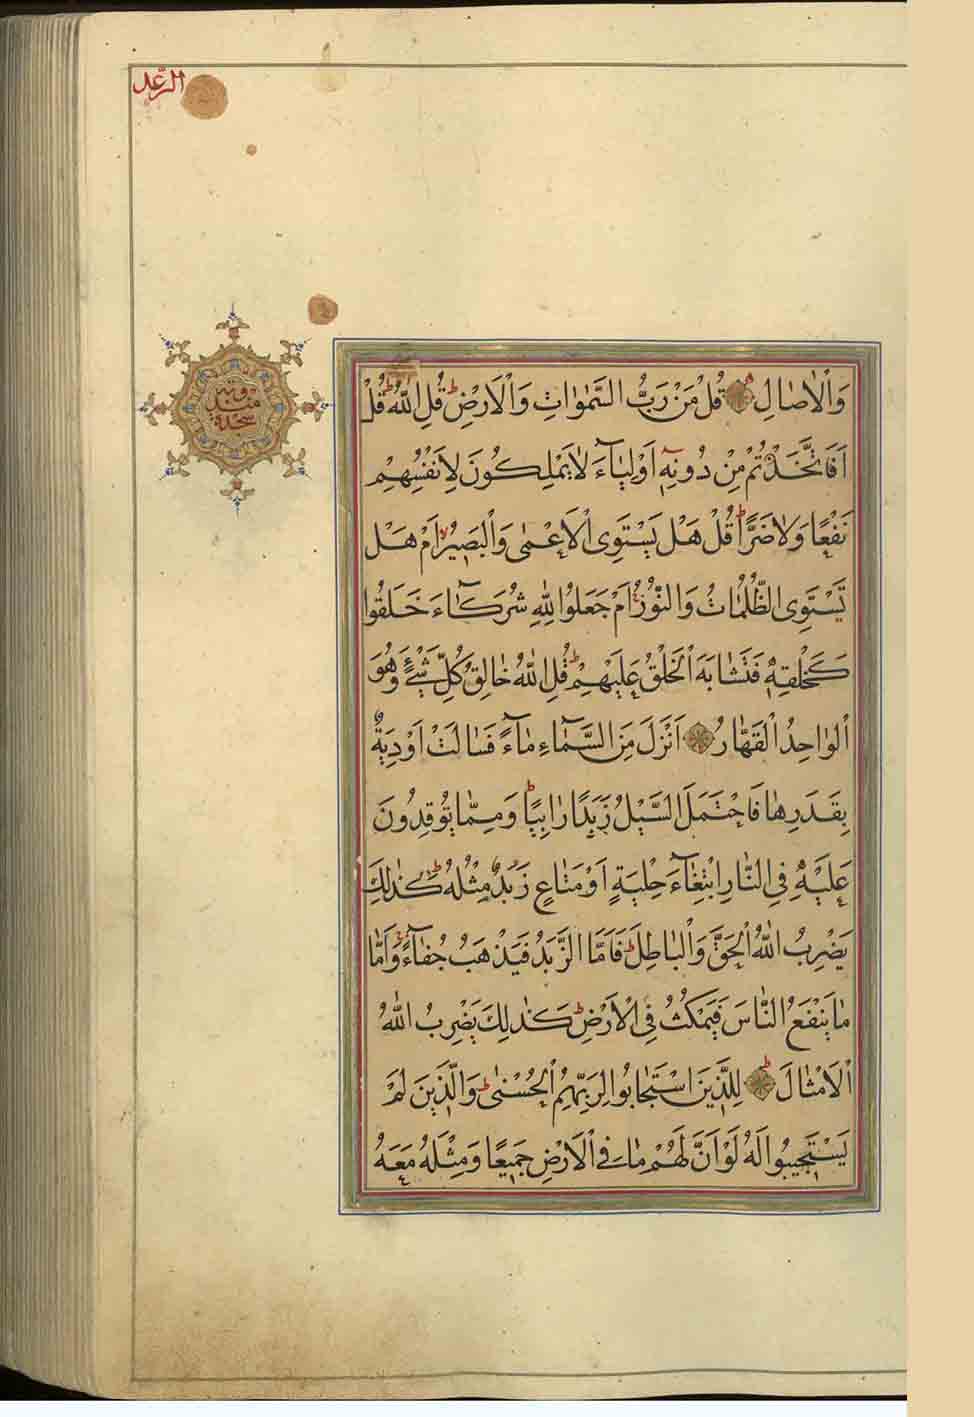 الرّعد
وَالْاٰصَالِ قُلْ مَنْ رَبُّ السَّمٰوَاتِ وَالْاَرْضِ ط قُلِ اللّٰهُ ط قُلْ
اَفَاتَّخَذْتُمْ مِنْ دُونِهٖٓ اَوْلِيَآءَ لَا يَمْلِكُونَ لِاَنْفُسِهِمْ
نَفْعًا وَلَا ضَرًّا ط قُلْ هَلْ يَسْتَوِى الْاَعْمٰى وَالْبَصِيرُ لا اَمْ هَلْ
تَسْتَوِى الظُّلُمَاتُ وَالنُّورُ اَمْ جَعَلُوا لِلّٰهِ شُرَكَآءَ خَلَقُوا
كَخَلْقِهٖ فَتَشَابَهَ الْخَلْقُ عَلَيْهِمْ ط قُلِ اللّٰهُ خَالِقُ كُلِّ شَيْءٍ وَهُوَ
الْوَاحِدُ الْقَهَّارُ اَنْزَلَ مِنَ السَّمَآءِ مَآءً فَسَالَتْ اَوْدِيَةٌ
بِقَدَرِهَا فَاحْتَمَلَ السَّيْلُ زَبَدًا رَابِيًا ط وَمِمَّا يُوقِدُونَ
عَلَيْهِ فِى النَّارِ ابْتِغَآءَ حِلْيَةٍ اَوْ مَتَاعٍ زَبَدٌ مِثْلُهُ ط كَذٰلِكَ
يَضْرِبُ اللّٰهُ الْحَقَّ وَالْبَاطِلَ ط فَاَمَّا الزَّبَدُ فَيَذْهَبُ جُفَآءً وَاَمَّا
مَا يَنْفَعُ النَّاسَ فَيَمْكُثُ فِى الْاَرْضِ ط كَذٰلِكَ يَضْرِبُ اللّٰهُ
الْاَمْثَالَ ط لِلَّذِينَ اسْتَجَابُوا لِرَبِّهِمُ الْحُسْنٰى ط وَالَّذِينَ لَمْ
يَسْتَجِيبُوا لَهُ لَوْ اَنَّ لَهُمْ مَا فِى الْاَرْضِ جَمِيعًا وَمِثْلَهُ مَعَهُ
سجدة